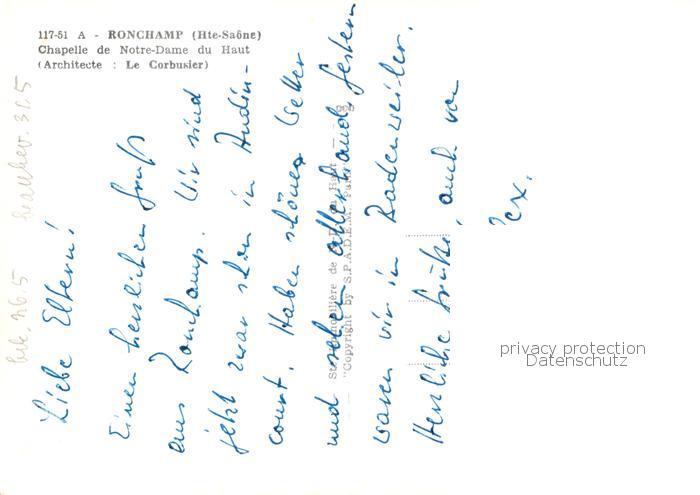 117-51 A - RONCHAMP (Hte-Saône)
Chapelle de Notre-Dame du Haut
(Architecte : Le Corbusier)
Liebe Eltern!
Einen herzlichen Gruß
aus Ronchamp. Wir sind
jetzt zwar schon in Audin-
court. Haben schönes Wetter
und sehen allerhand, gestern
waren wir in Badenweiler.
Herzliche Grüße, auch von
Sté Immobilière de Notre-Dame du Haut
"Copyright by S.P.A.D.E.M. Paris"
privacy protection
Datenschutz